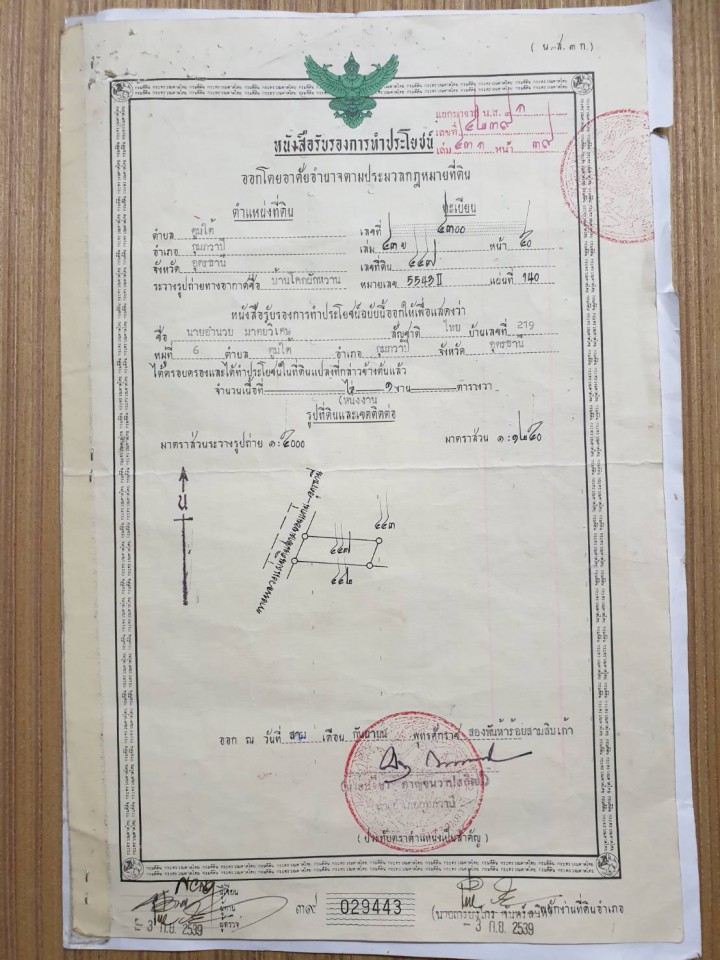 (น.ส.๓ ก.)
แยกมาจาก น.ส. ๓ ก
เลขที่ ๔๒๓๙
เล่ม ๔๓ ก หน้า ๓๙
หนังสือรับรองการทำประโยชน์
ออกโดยอาศัยอำนาจตามประมวลกฎหมายที่ดิน
ตำแหน่งที่ดิน ทะเบียน
ตำบล ตูมใต้ เลขที่ ๔๓๐๐
อำเภอ กุมภวาปี เล่ม ๔๓ หน้า ๕๐
จังหวัด อุดรธานี เลขที่ดิน ๔๔๗
ระวางรูปถ่ายทางอากาศชื่อ บ้านโคกยักหวาน หมายเลข 5543 II แผ่นที่ 140
หนังสือรับรองการทำประโยชน์ฉบับนี้ออกให้เพื่อแสดงว่า
ชื่อ นายอำนวย มาตยวิเศษ สัญชาติ ไทย บ้านเลขที่ 219
หมู่ที่ 6 ตำบล ตูมใต้ อำเภอ กุมภวาปี จังหวัด อุดรธานี
ได้ครอบครองและได้ทำประโยชน์ในที่ดินแปลงที่กล่าวข้างต้นแล้ว
จำนวนเนื้อที่ ไร่ ๑ งาน ตารางวา
(หนึ่งงาน
รูปที่ดินและเขตติดต่อ
มาตราส่วนระวางรูปถ่าย ๑:๕๐๐๐ มาตราส่วน ๑:๑๒๕๐
น
๔๔๓
๔๔๗
๔๔๒
ออก ณ วันที่ สาม เดือน กันยายน พุทธศักราช สองพันห้าร้อยสามสิบเก้า
(ประทับตราตำแหน่งเป็นสำคัญ)
ผู้เขียน
ผู้ทาน
ผู้ตรวจ
- 3 ก.ย. 2539
๓๙ 029443
เจ้าพนักงานที่ดินอำเภอ
- 3 ก.ย. 2539